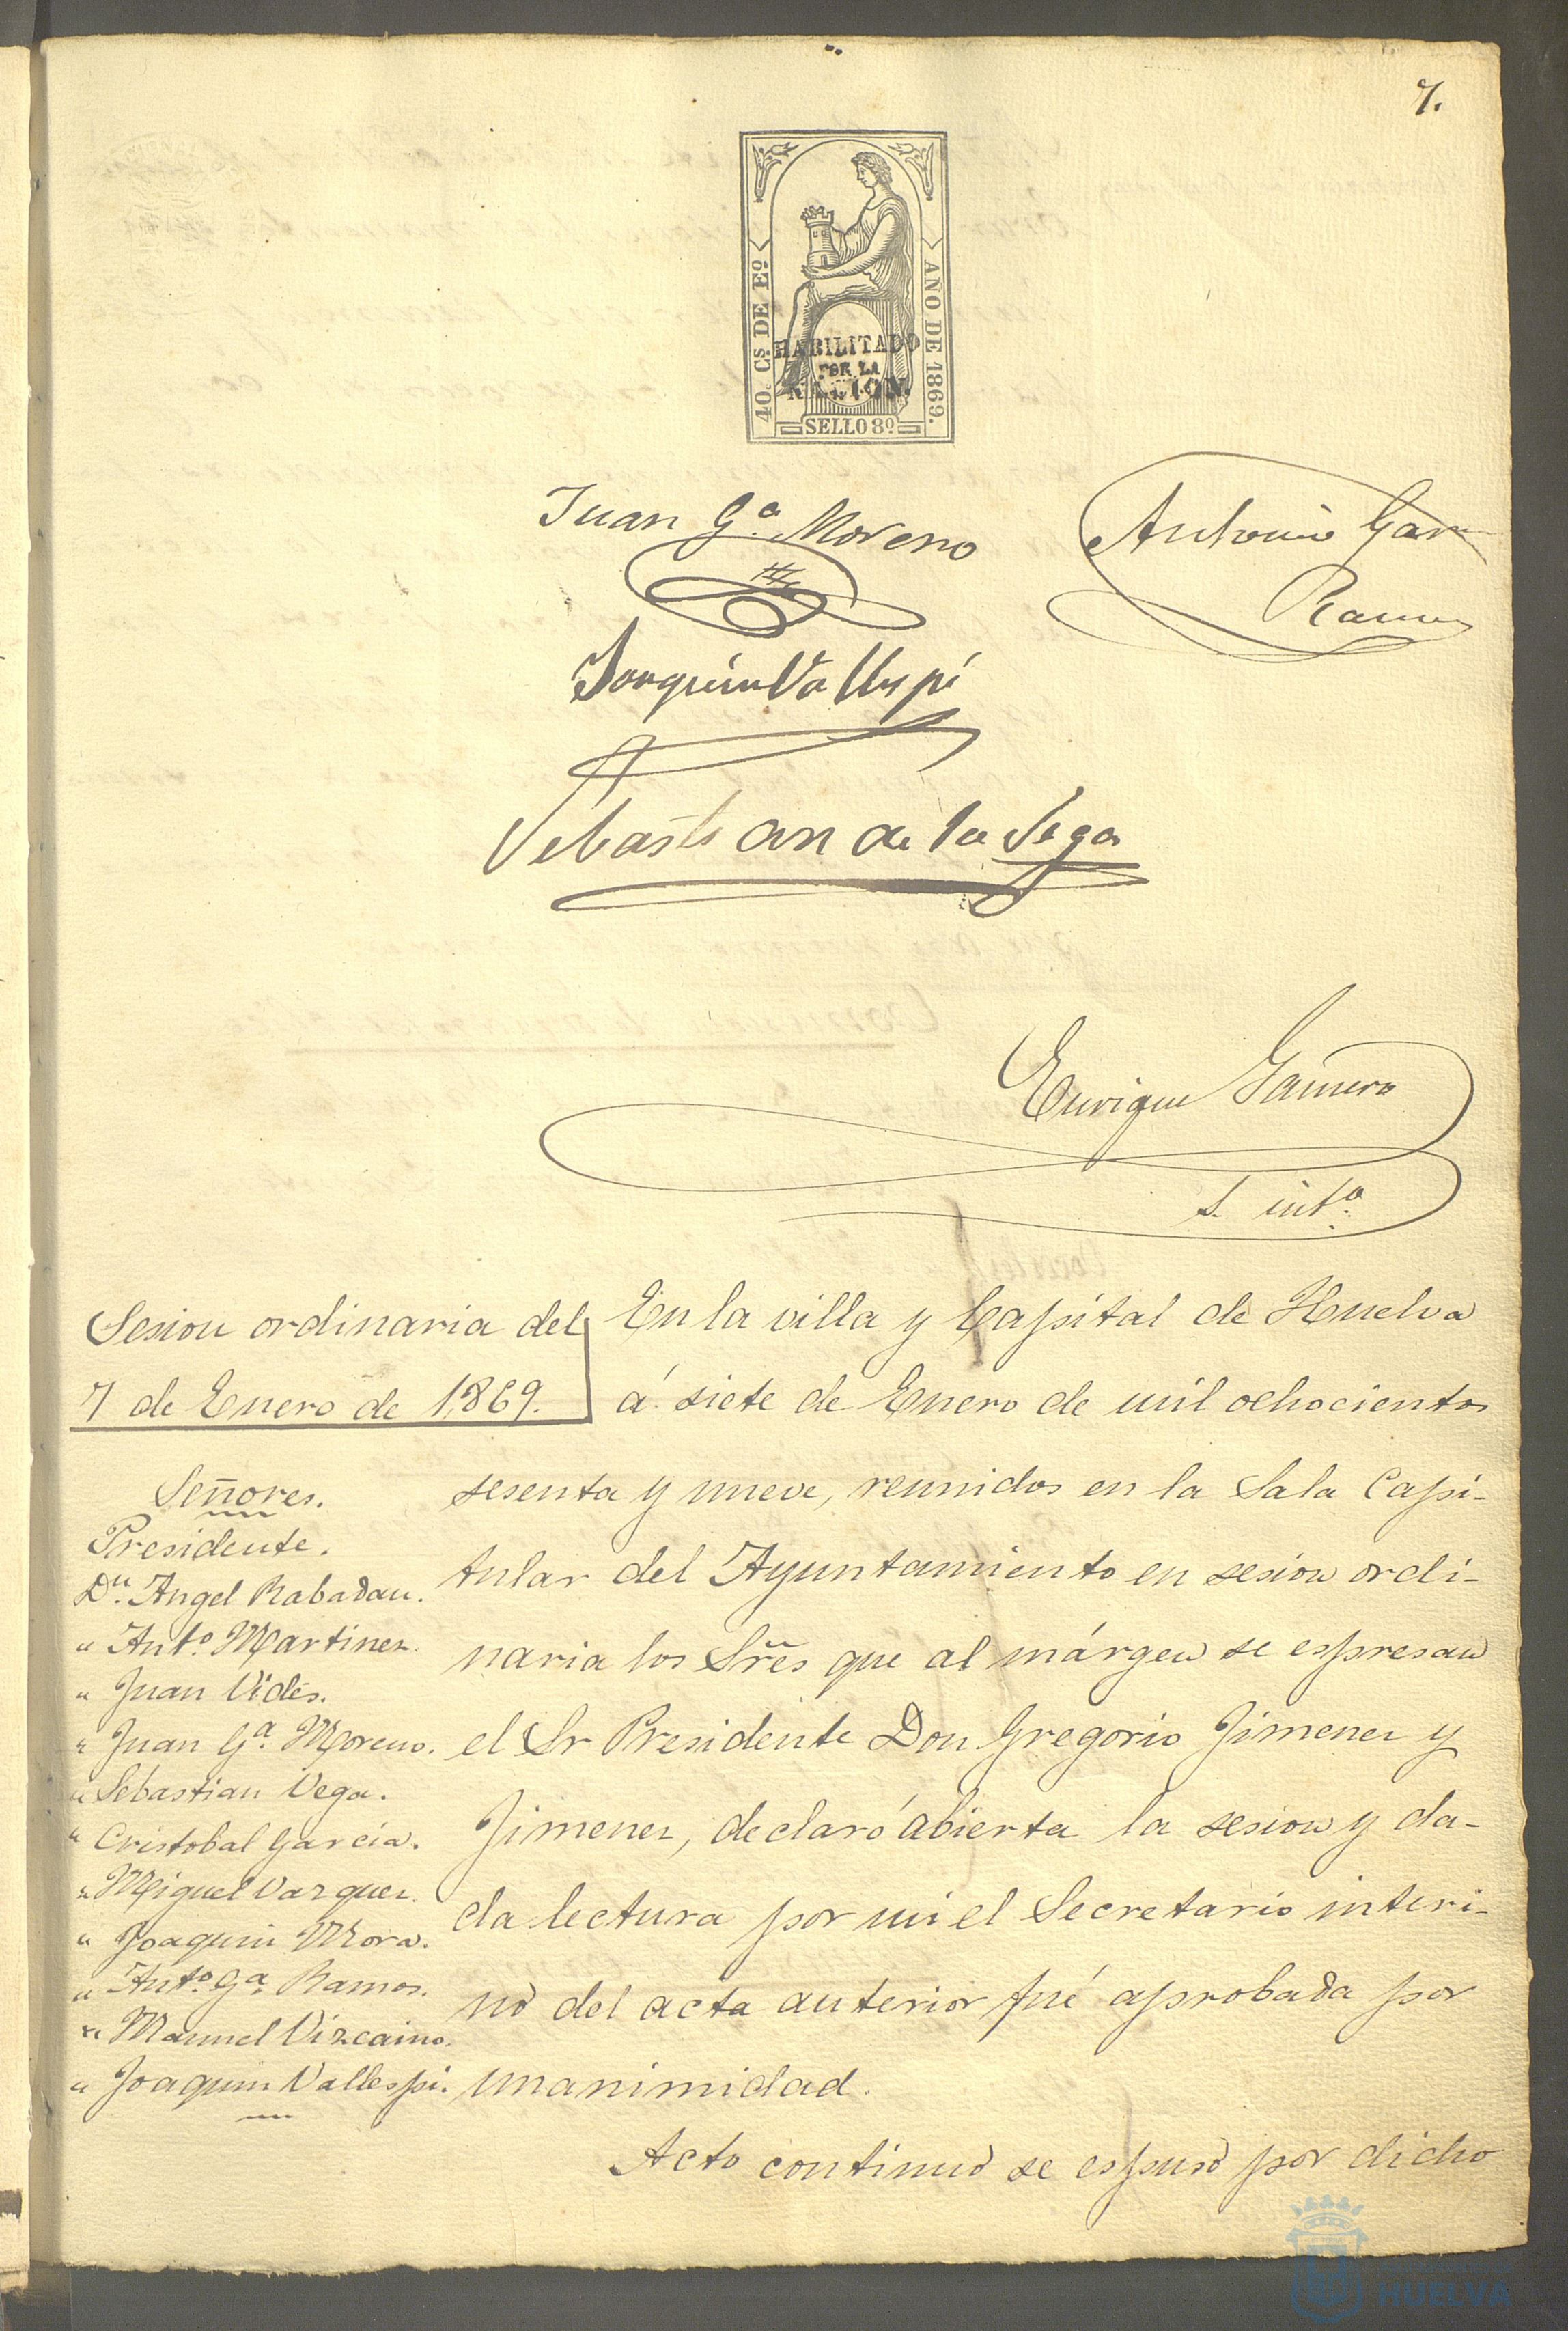 7.
40. Cs. DE Eº.
AÑO DE 1869.
HABILITADO
POR LA
NACION.
SELLO 8º
Juan Gª. Moreno
Antonio Garcia
Ramos
Joaquin Vallespí
Sebastian de la Vega
Enrique Gamero
S. intº.
Sesion ordinaria del
7 de Enero de 1869.
Señores.
Presidente.
Dn. Angel Rabadan.
" Antº. Martinez.
" Juan Vides.
" Juan Gª. Moreno.
" Sebastian Vega.
" Cristobal Garcia.
" Miguel Vazquez.
" Joaquin Mora.
" Antº. Gª. Ramos.
" Manuel Vizcaino.
" Joaquin Vallespi.
En la villa y Capital de Huelva
á siete de Enero de mil ochocientos
sesenta y nueve, reunidos en la Sala Capi-
tular del Ayuntamiento en sesion ordi-
naria los Sres que al márgen se espresan
el Sr Presidente Don Gregorio Jimenez y
Jimenez, declaró abierta la sesion y da-
da lectura por mi el Secretario interi-
no del acta anterior fué aprobada por
unanimidad.
Acto continuo se espuso por dicho
HUELVA